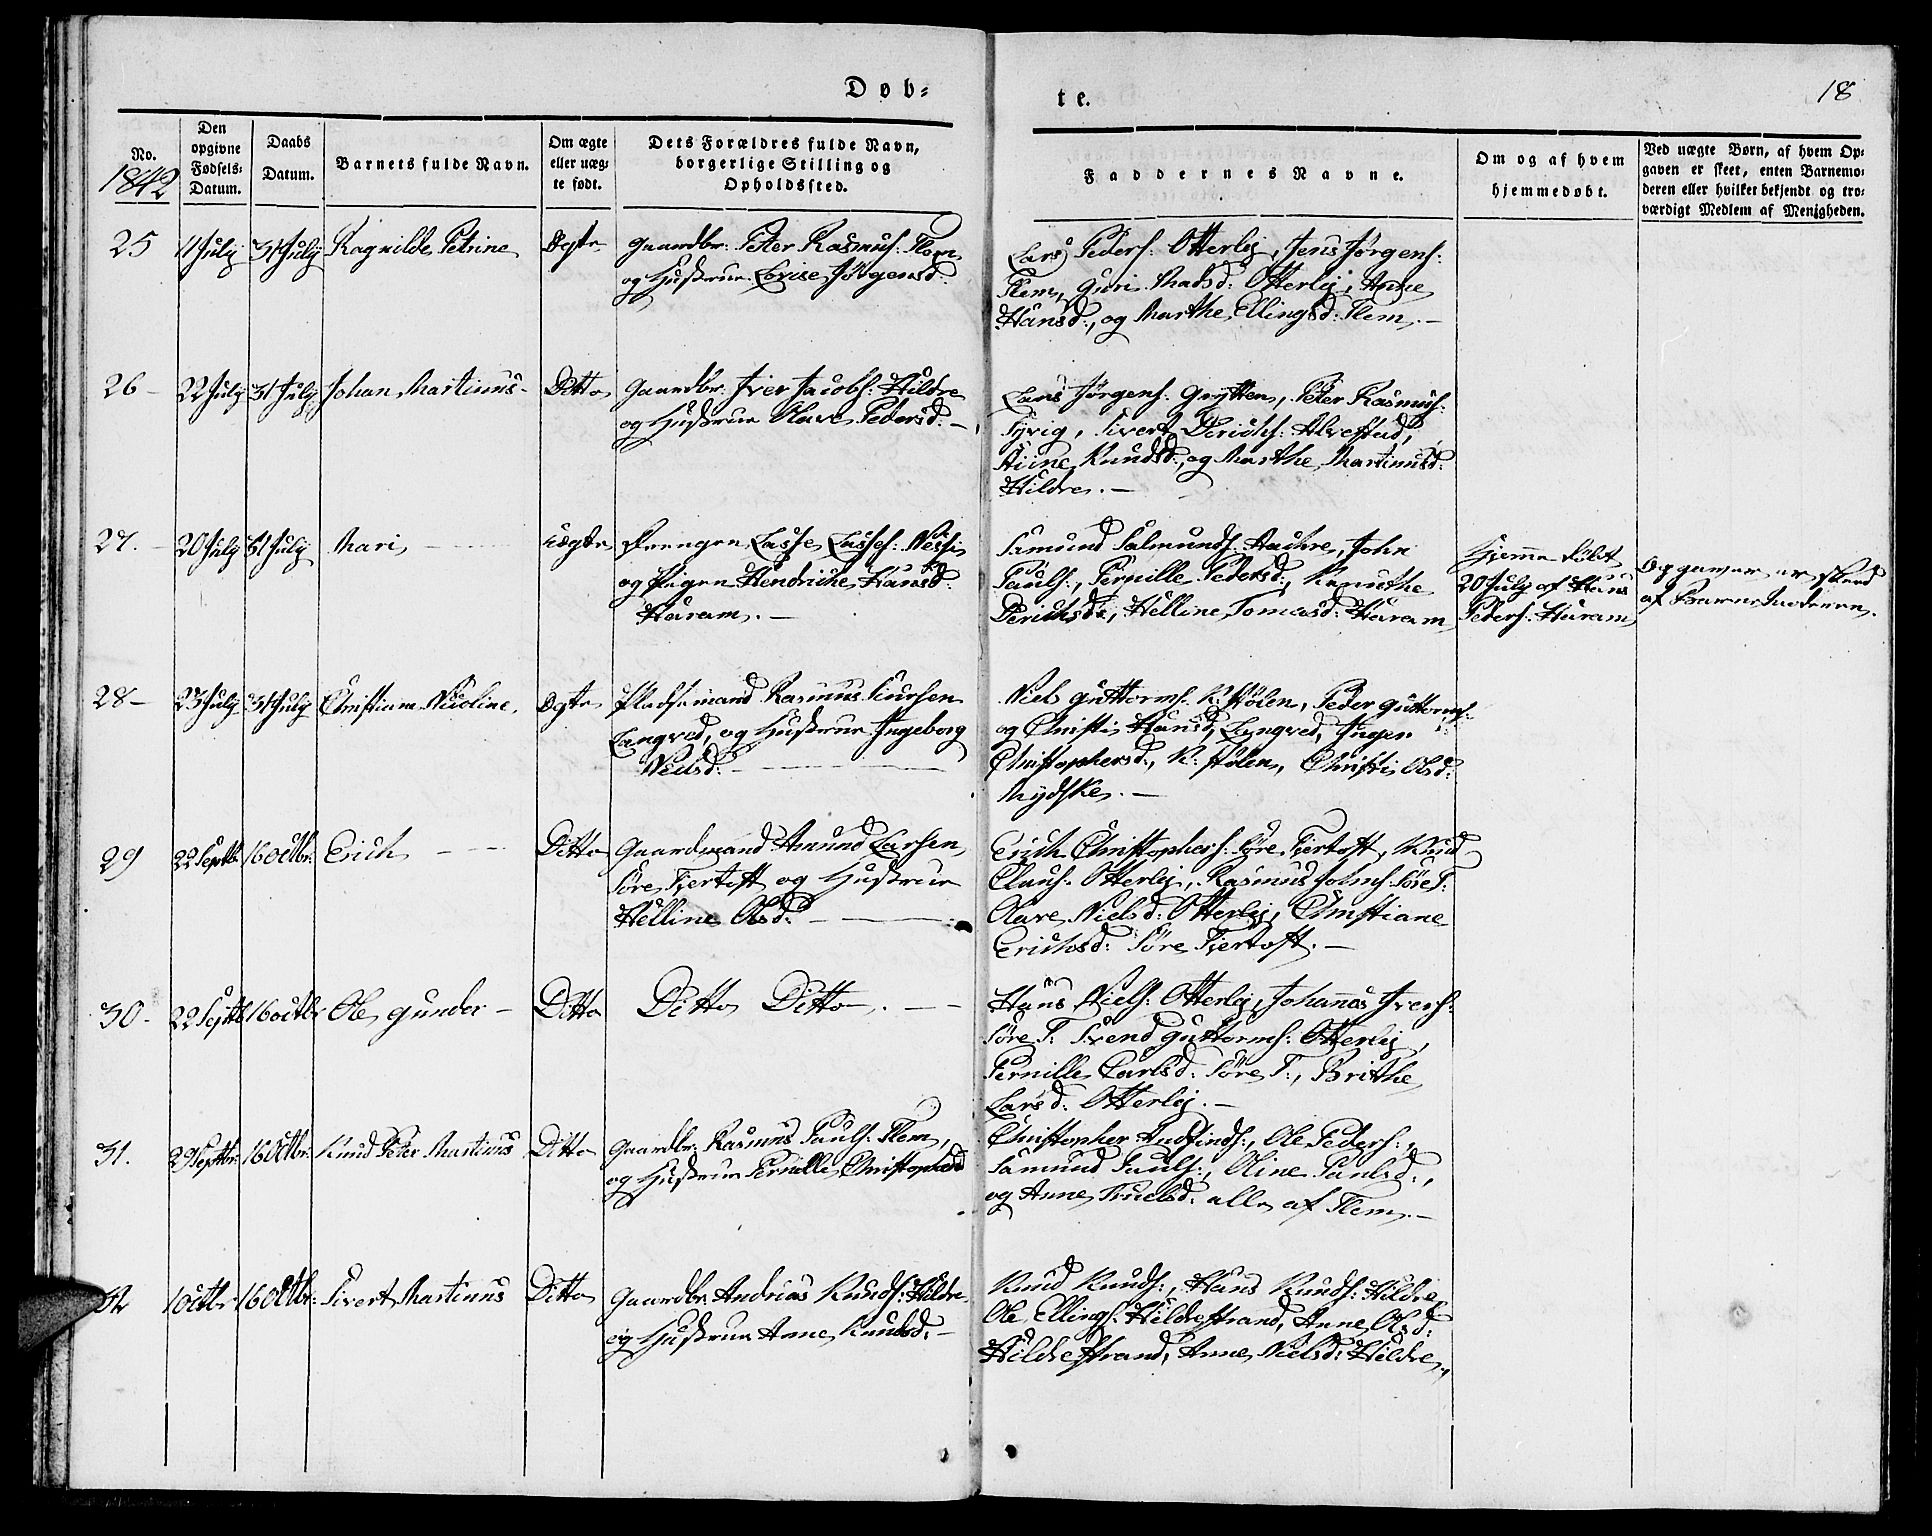 Døb=
te.
18
No.
1842
Den
opgivne
Fødsels=
Datum.
Daabs
Datum.
Barnets fulde Navn.
Om ægte
eller uæg=
te født.
Dets Forældres fulde Navn,
borgerlige Stilling og
Opholdssted.
Faddernes Navne.
Om og af hvem
hjemmedøbt.
Ved uægte Børn, af hvem Op=
gaven er skeet, enten Barnemo=
deren eller hvilket bekjendt og tro=
værdigt Medlem af Menigheden.
25
11 July
31 July
Ragnilde Petrine
Ægte
Gaardbr: Peter Rasmus: Flem
og Hustrue Jørgensd:
Lars Peders: Otterlej, Jens Jørgens:
Flem, Guri Madsd: Otterlej, Anne
Hansd:, og Marthe Ellingsd: Flem. —
26 —
22 July
31 July
Johan Martinus —
Ditto
Gaardbr: Iver Jacobs: Hildre
og Hustrue Olave Pedersd: —
Lars Jørgens: Grytten, Peter Rasmus:
Sivert Derichs:
Stine Knudsd:, og Marthe Martinusd:
Hildre. —
27. —
20 July
31 July
Mari —
uægte
Drengen Lasse Lasses:
og Pigen Hendriche Hansd:
Haram. —
Samund Salmunds: John
Pauls:, Pernille Pedersd:, Knuthe
Derichsd:, Helline Tomasd: Haram
Hjemme døbt
20 July af Hans
Peders: Haram
Opgaven er skeed
af Barnemoderen.
28 —
23 July
31 July
Christiane Nicoline.
Ægte
Pladsemand Rasmus Larsen
Longved, og Hustrue Ingeborg
Nielsd: —
Niels Guttorms: K: Stølen, Peder Guttorms:
og Christi Hansd, Longved, Inger
Christophersd:, K: Stølen, Christi Olsd:
Mydske. —
29
22 Septbr:
16 Octbr:
Erich —
Ditto
Gaardmand Amund Larsen
Søre Fjertoft og Hustrue
Helline Olsd: —
Erich Christophers: Søre Fjertoft, Knud
Claus: Otterlej, Rasmus Johns: Søre F:
Olave Nielsd: Otterlej, Christiane
Erichsd: Søre Fjertoft. —
30 —
22 Septbr
16 octbr
Ole Gunder —
Ditto
Ditto Ditto. —
Hans Niels: Otterlej, Johannes Ivers:
Søre F: Svend Guttorms: Otterlej,
Pernille Carlsd: Søre F:, Brithe
Larsd: Otterlej. —
31.
29 Septbr:
16 Octbr:
Knud Peter Martinus
Ditto
Gaardbr: Rasmus Pauls: Flem,
og Hustrue Pernille Christophersd
Christopher Ole Peders:,
Samund Pauls:, Oline Paulsd:,
og Anne Truelsd: alle af Flem. —
32
1 Octbr:
16 Octbr:
Sivert Martinus
Ditto
Gaardbr: Andrias Knuds: Hildre
og Hustrue Anne Knudsd: —
Knud Knuds:, Hans Knuds: Hildre,
Ole Ellings: Hildrestrand, Anne Olsd:
Hildrestrand, Anne Nielsd: Hildre.